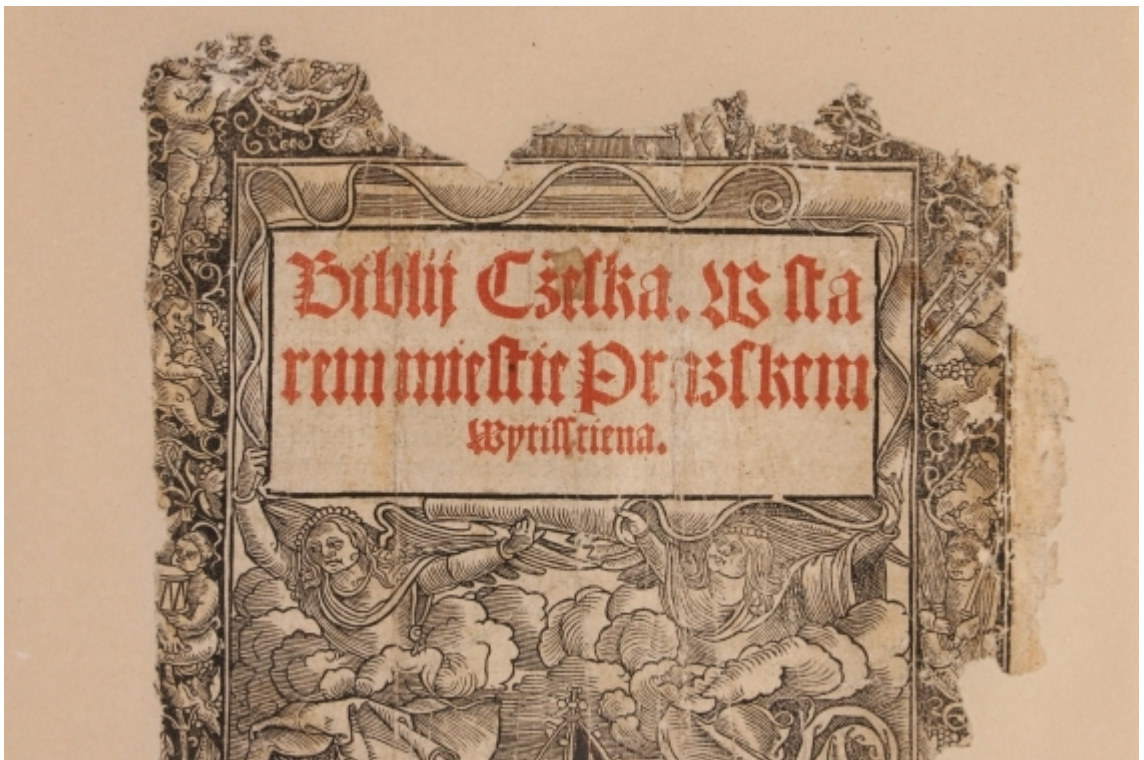 Biblij Cżeſka. W ſta
rem mieſtie Prazſkem
Wytiſſtiena.